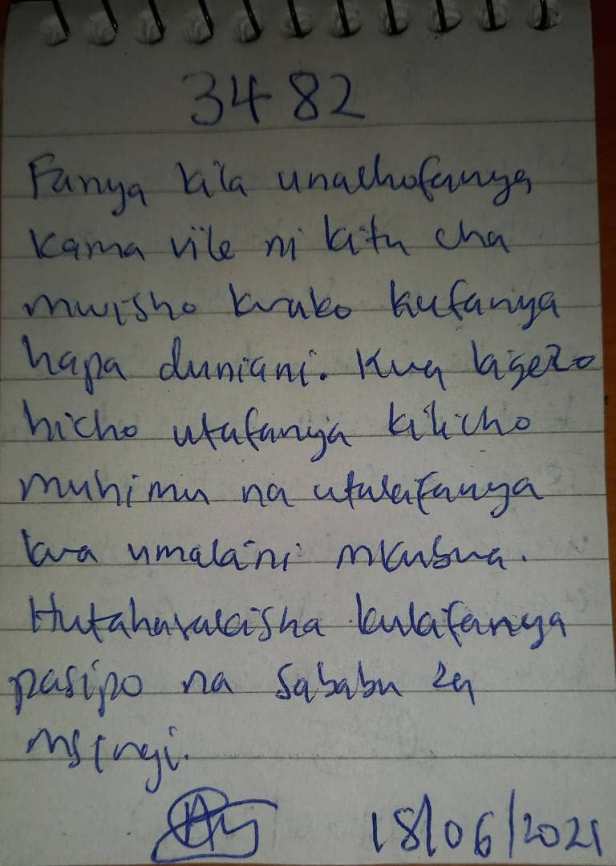 3482
Fanya kila unachofanya
kama vile ni kitu cha
mwisho kwako kufanya
hapa duniani. Kwa kigezo
hicho utafanya kilicho
muhimu na utakifanya
kwa umakini mkubwa.
Hutaharakisha kukifanya
pasipo na sababu za
msingi.
18/06/2021